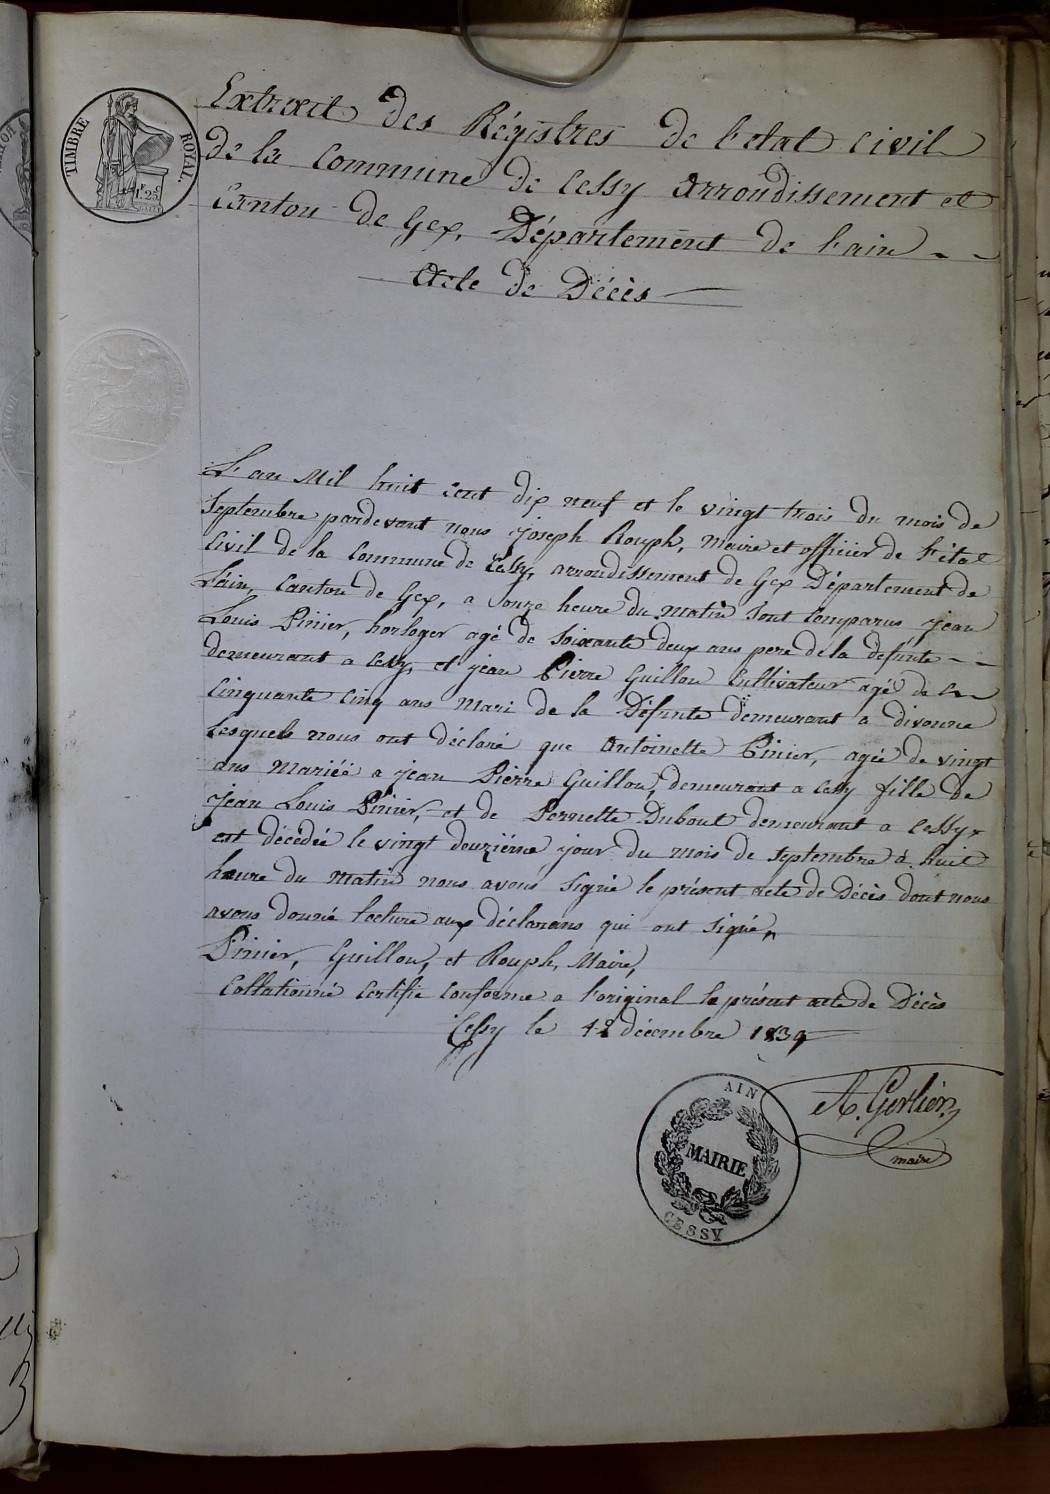 TIMBRE ROYAL.
1f.25c
Extrait des Régistres de l'etat civil
de la Commune de Cessy arrondissement et
Canton de Gex, Département de l'ain - -
Acte de Décès
L'an Mil huit cent dix neuf et le vingt trois du mois de
Septembre pardevant nous joseph Rouph, Maire et officier de l'état
Civil de la Commune de Cessy, arrondissement de Gex Département de
L'ain, Canton de Gex, a onze heure du matin sont Comparus jean
Louis Pinier, horloger agé de soixante deux ans pere de la défunte - -
demeurant a Cessy, et jean Pierre Guillou Cultivateur agé de
Cinquante Cinq ans Mari de la Défunte demeurant a divonne
Lesquels nous ont déclaré que Antoinette Pinier, agée de vingt
ans Mariéé a jean Pierre Guillou, demeurant a Cessy fille de
jean Louis Pinier, et de Pernette Dubout demeurant a Cessy
est décédée le vingt deuxiéme jour du mois de septembre à huit
heure du matin nous avons signé le présent acte de Décès dont nous
avons donné lecture aux déclarans qui ont signé,
Pinier, Guillou, et Rouph, Maire,
Collationné Certifié Conforme a l'original le présent acte de Décès
Cessy le 12 décembre 1839
A. Gerlier
maire
AIN
MAIRIE
CESSY